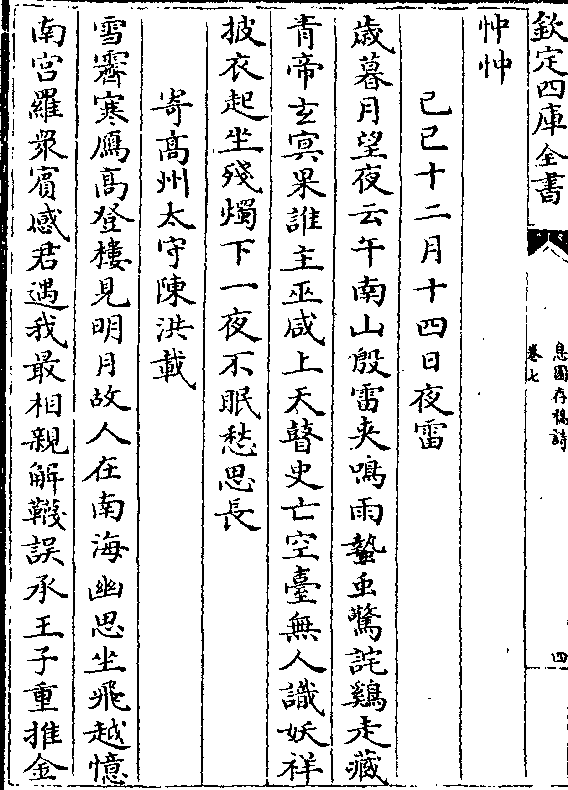 欽定四庫全書
息園存稿詩
卷七
四
忡忡
己巳十二月十四日夜雷
歳暮月望夜云午南山殷雷夾鳴雨蟄䖝驚詫鷄走藏
青帝玄冥果誰主巫咸上天瞽史亡空臺無人識妖祥
披衣起坐殘燭下一夜不眠愁思長
寄髙州太守陳洪載
雪霽寒鴈髙登樓見明月故人在南海幽思坐飛越憶
南宫羅衆賔感君遇我最相親解韈誤承王子重推金